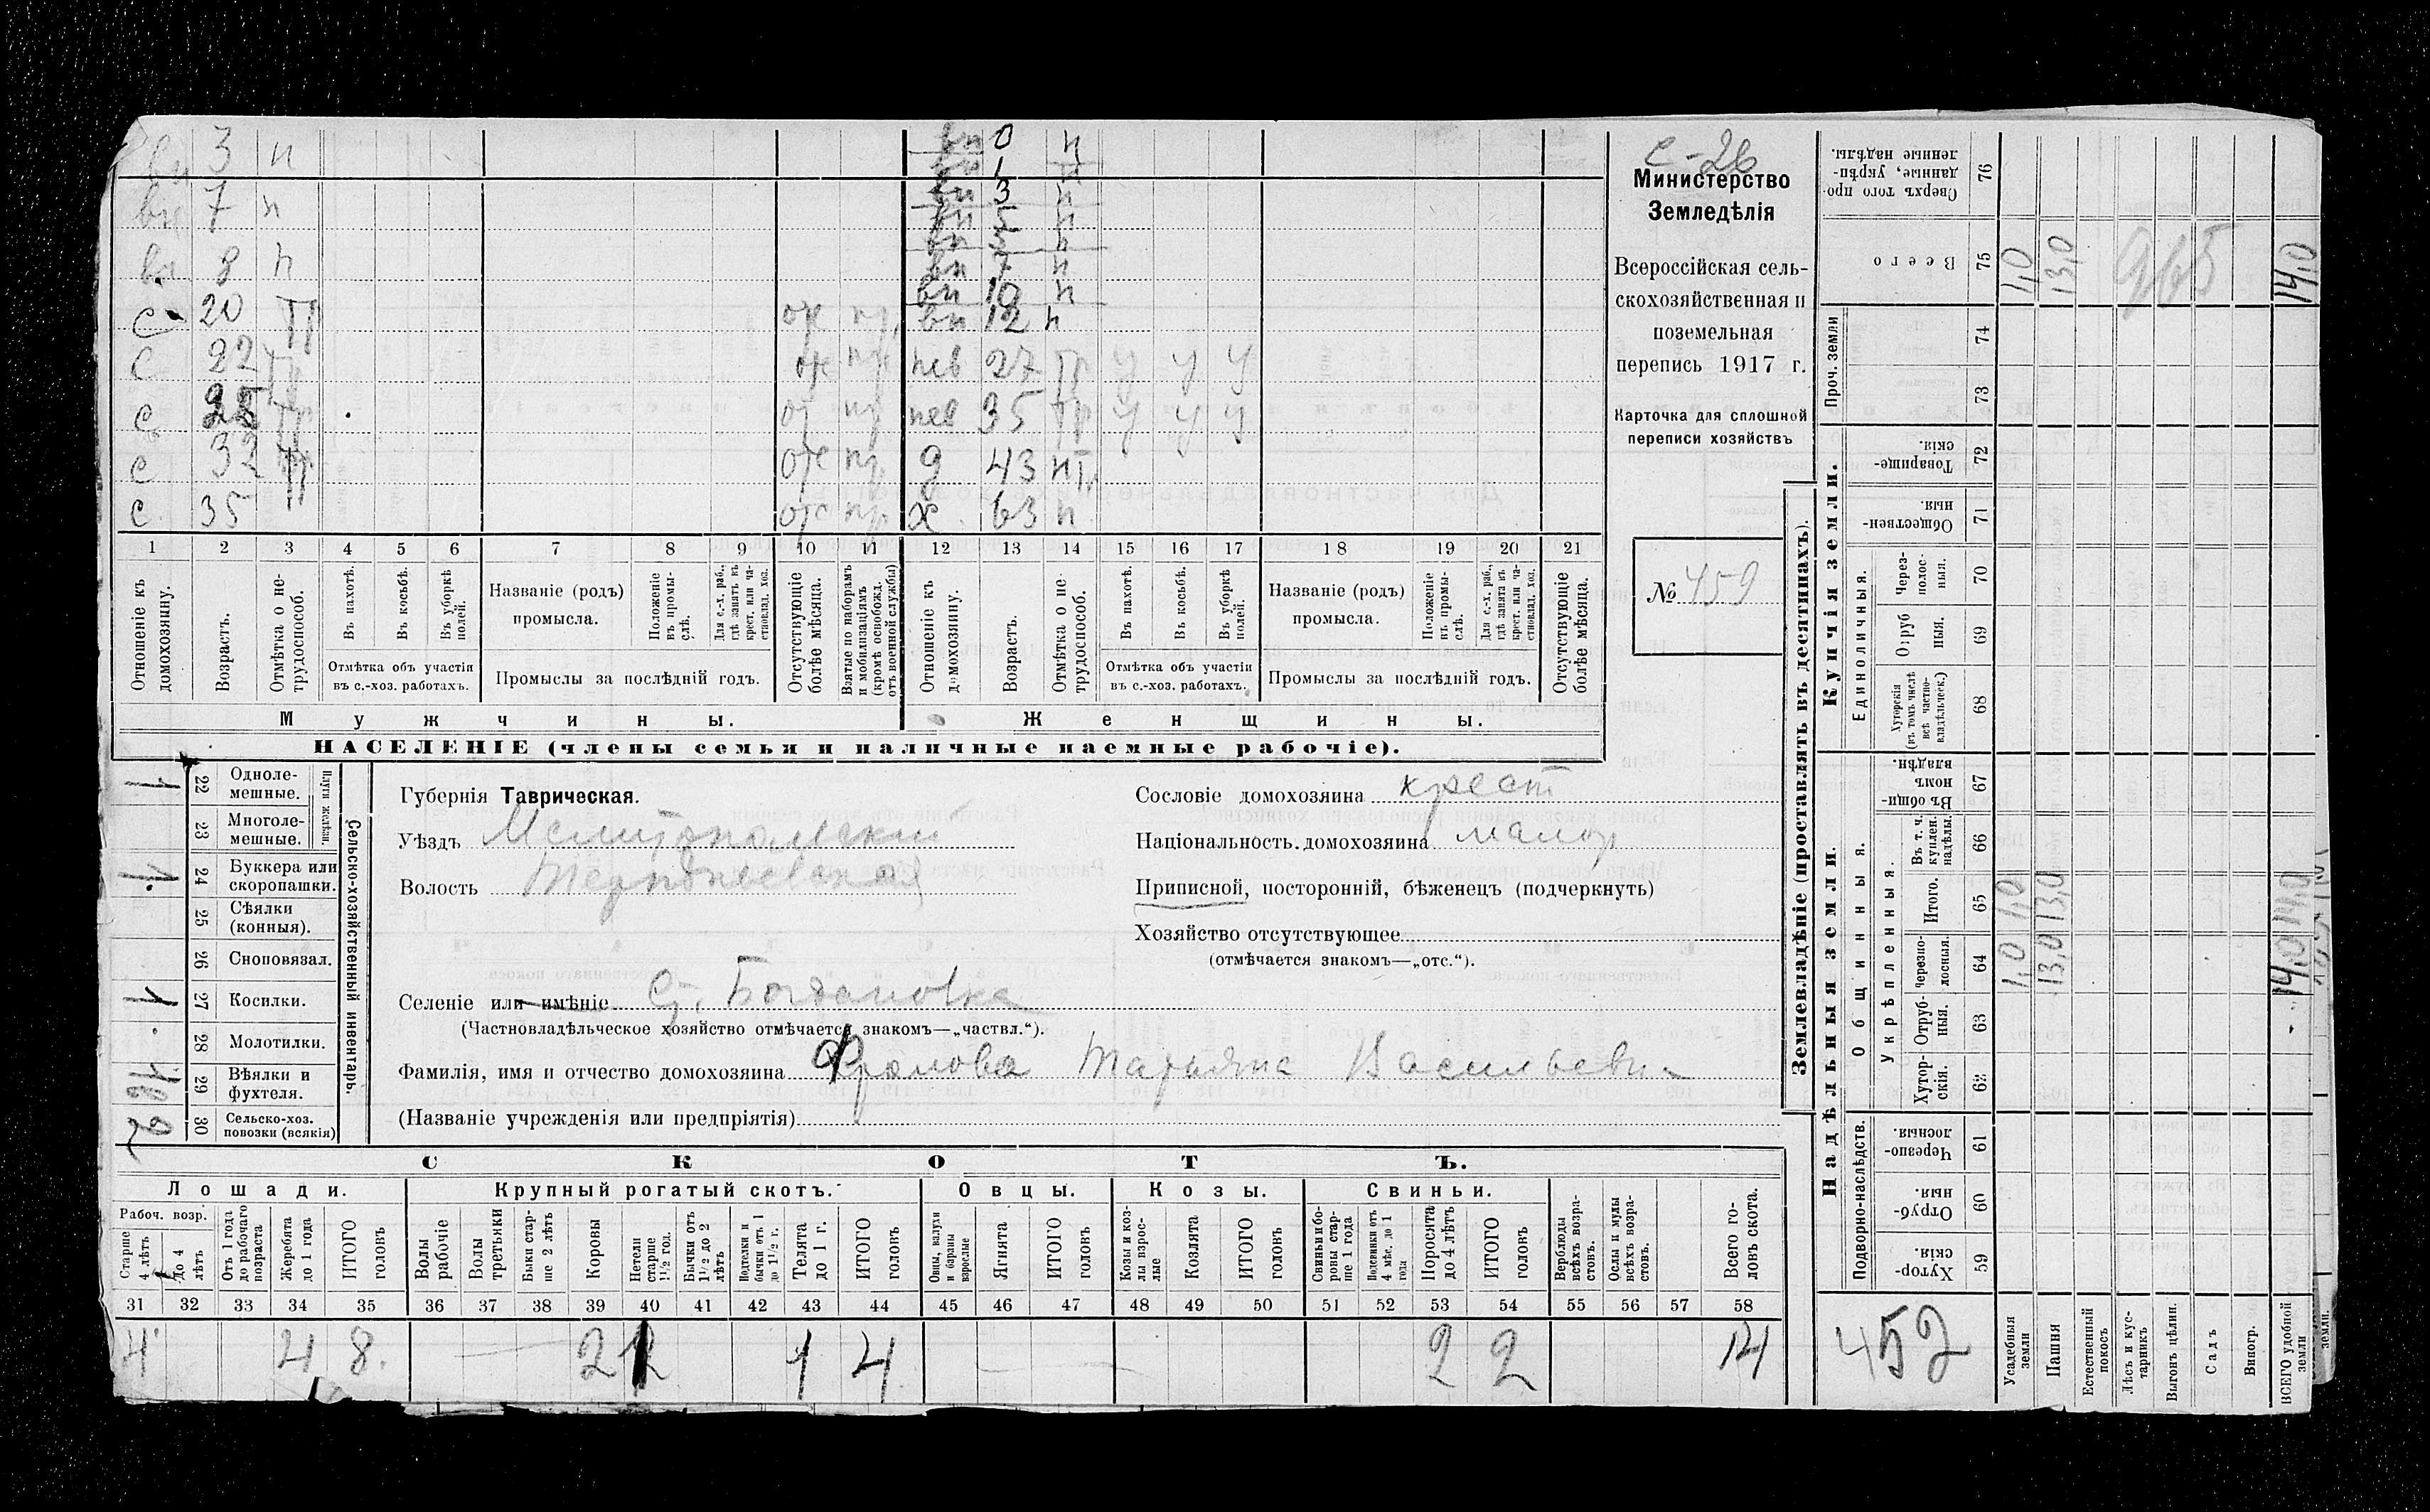 вн 3 н
вн 7 н
вн 8 н
с 20 тр отс пр.
с 22 тр отс пр.
с тр от пр
с 32 тр отс пр.
с. 35 " отс пр.
вн 0 н
вн 1 н
вн 3 н
вн 5 н
вн 5 н
вн 7 н
вн 10 н
вн 12 н
нев 27 тр у у у
нев 35 тр у у у
д 43 нтр.
х. 63 н
1 2 3 4 5 6 7 8 9 10 11 12 13 14 15 16 17 18 19 20 21
Отношеніе къ домохозяину.
Возрастъ.
Отмѣтка о нетрудоспособ.
Въ пахотѣ.
Въ косьбѣ.
Въ уборкѣ полей.
Отмѣтка объ участіи въ с.-хоз. работахъ.
Названіе (родъ) промысла.
Положеніе въ промыслѣ.
Для с.-х. раб., гдѣ занятъ въ крест. или частновлад. хоз.
Промыслы за послѣдній годъ.
Отсутствующіе болѣе мѣсяца.
Взятые по наборамъ и мобилизаціямъ (кромѣ освобожд. отъ военной службы)
Отношеніе къ домохозяину.
Возрастъ.
Отмѣтка о нетрудоспособ.
Въ пахотѣ.
Въ косьбѣ.
Въ уборкѣ полей.
Отмѣтка объ участіи въ с.-хоз. работахъ.
Названіе (родъ) промысла.
Положеніе въ промыслѣ.
Для с.-х. раб., гдѣ занята въ крест. или частновлад. хоз.
Промыслы за послѣдній годъ.
Отсутствующіе болѣе мѣсяца.
Мужчины.
Женщины.
НАСЕЛЕНІЕ (члены семьи и наличные наемные рабочіе).
с-26
Министерство
Земледѣлія
Всероссійская сель-
скохозяйственная и
поземельная
перепись 1917 г.
Карточка для сплошной
переписи хозяйствъ
№ 459
Сельско-хозяйственный инвентарь.
Плуги желѣзн.
22 Одноле-
мешные. 1
23 Многоле-
мешные.
24 Буккера или
скоропашки. 1
25 Сѣялки
(конныя).
26 Сноповязал.
27 Косилки. 1
28 Молотилки.
29 Вѣялки и
фухтеля.
30 Сельско-хоз.
повозки (всякія)
Губернія Таврическая.
Уѣздъ Мелитопольскій
Волость Терпеньевская
Селеніе или имѣніе С. Богдановка
(Частновладѣльческое хозяйство отмѣчается знакомъ—„частвл.“).
Фамилія, имя и отчество домохозяина Фролова Татьяна Васильевн
(Названіе учрежденія или предпріятія)
Сословіе домохозяина крест
Національность домохозяина малор
Приписной, посторонній, бѣженецъ (подчеркнуть)
Хозяйство отсутствующее
(отмѣчается знакомъ—„отс.“).
СКОТЪ.
Лошади. Крупный рогатый скотъ. Овцы. Козы. Свиньи.
Рабоч. возр.
Старше 4 лѣтъ
До 4 лѣтъ
Отъ 1 года до рабочаго возраста
Жеребята до 1 года
ИТОГО головъ
Волы рабочіе
Волы третьяки
Быки старше 2 лѣтъ
Коровы
Нетели старше 1½ год.
Бычки отъ 1½ до 2 лѣтъ
Подтелки и бычки отъ 1 до 1½ г.
Телята до 1 г.
ИТОГО головъ
Овцы, валухи и бараны взрослые
Ягнята
ИТОГО головъ
Козы и козлы взрослые
Козлята
ИТОГО головъ
Свиньи и боровы старше 1 года
Подсвинки отъ 4 мѣс. до 1 года
Поросята до 4 лѣтъ
ИТОГО головъ
Верблюды всѣхъ возрастовъ.
Ослы и мулы всѣхъ возрастовъ.
Всего головъ скота.
31 32 33 34 35 36 37 38 39 40 41 42 43 44 45 46 47 48 49 50 51 52 53 54 55 56 57 58
4 4 8. 2 1 4 2 2 14
Землевладѣніе (проставлять въ десятинахъ).
Купчія земли.
Надѣльныя земли.
Проч. земли
Единоличныя.
Общинныя.
Укрѣпленныя.
Подворно-наслѣдств.
Сверхъ того проданные, укрѣпленные надѣлы. 76
Всего 75 1,0 13,0 965 14,0
74
73
Товарищескія. 72
Общественныя. 71
Черезполосныя. 70
Отрубныя. 69
Хуторскія (въ томъ числѣ всѣ частновладѣльческ.) 68
Въ общинномъ владѣн. 67
Въ т. ч. куплен. надѣлы. 66
Итого. 65 1,0 13,0 14,0
Черезполосныя. 64 1,0 13,0 14,0
Отрубныя. 63
Хуторскія. 62
Черезполосныя. 61
Отрубныя. 60
Хуторскія. 59
452
Усадебныя земли
Пашня
Естественный покосъ
Лѣсъ и кустарникъ
Выгонъ цѣлин.
Садъ
Виногр.
ВСЕГО удобной земли
земли.